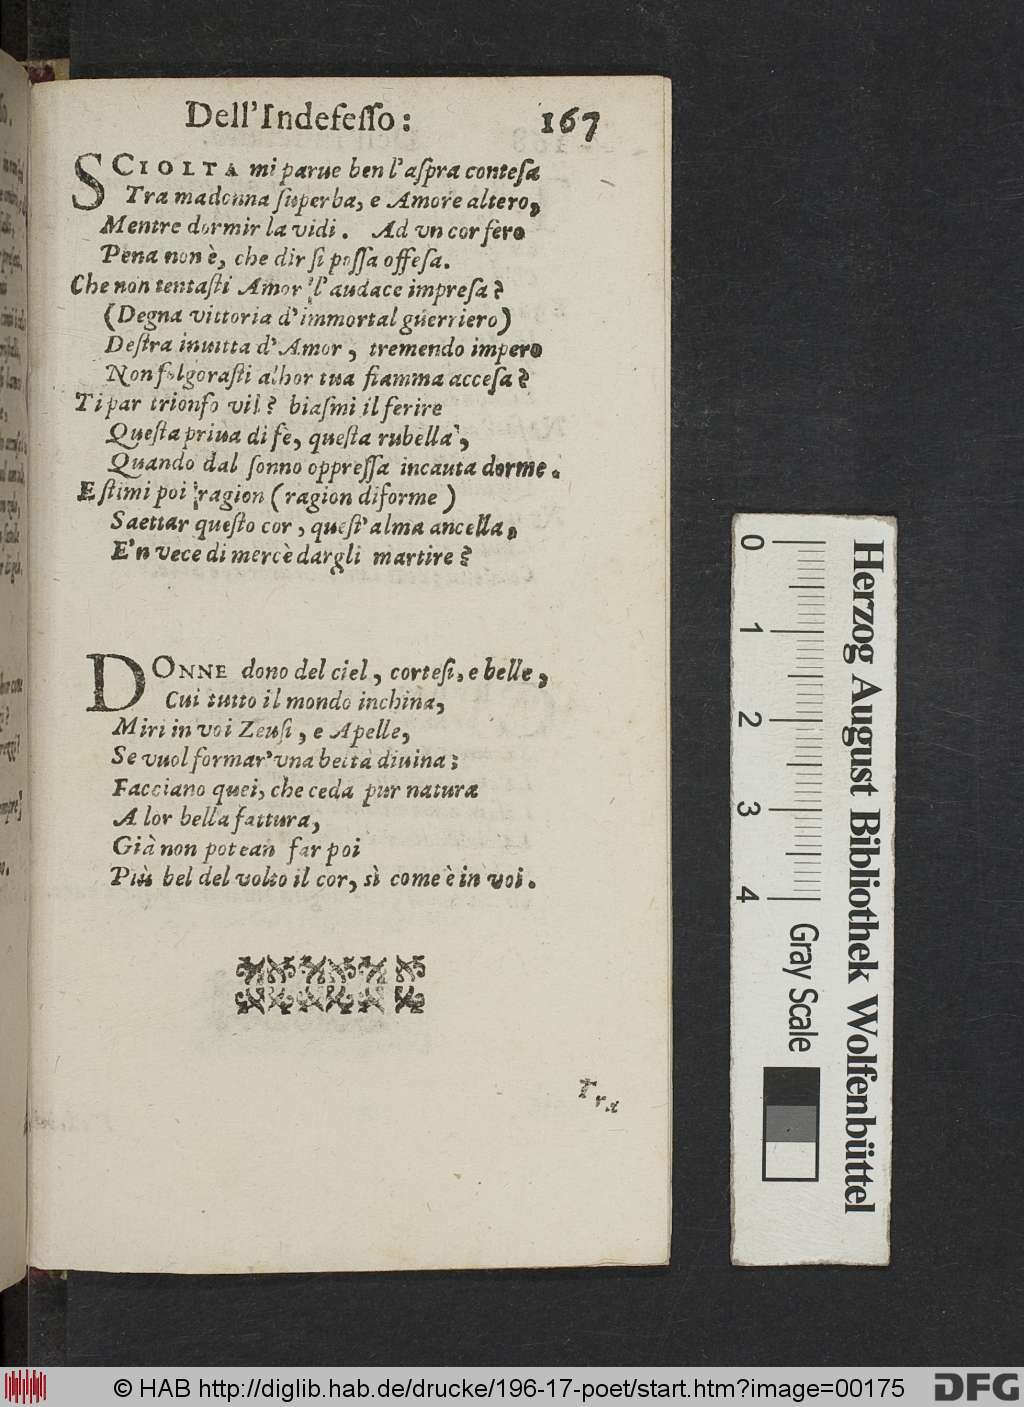 Dell'Indefeſſo: 167
SCIOLTA mi parue ben l'aſpra conteſa
Tra madonna ſuperba, e Amore altero,
Mentre dormir la vidi. Ad vn cor fero
Pena non è, che dir ſi poſſa offeſa.
Che non tentaſti Amor l'audace impreſa?
(Degna vittoria d'immortal guerriero)
Deſtra inuitta d'Amor, tremendo impero
Non folgoraſti alhor tua fiamma acceſa?
Ti par trionfo vil? biaſmi il ferire
Queſta priua di fè, queſta rubella,
Quando dal ſonno oppreſſa incauta dorme.
E ſtimi poi ragion (ragion diforme)
Saettar queſto cor, queſt'alma ancella,
E'n vece di mercè dargli martire?
DONNE dono del ciel, corteſi, e belle,
Cui tutto il mondo inchina,
Miri in voi Zeuſi, e Apelle,
Se vuol formar'vna beltà diuina;
Facciano quei, che ceda pur natura
A lor bella fattura,
Già non potean far poi
Più bel del volto il cor, sì come è in voi.
Tra
0 1 2 3 4
Gray Scale
Herzog August Bibliothek Wolfenbüttel
© HAB http://diglib.hab.de/drucke/196-17-poet/start.htm?image=00175
DFG